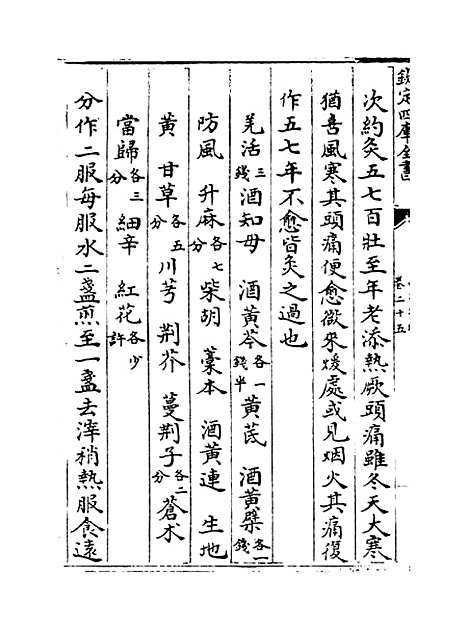 欽定四庫全書
卷二十五
次約灸五七百壯至年老添熱厥頭痛雖冬天大寒
猶喜風寒其頭痛便愈微來煖處或見烟火其痛復
作五七年不愈皆灸之過也
羌活三錢 酒知母 酒黃芩各一錢半 黃芪 酒黃蘗各一錢
防風 升麻各七分 柴胡 藁本 酒黃連 生地
黃 甘草各五分 川芎 荆芥 蔓荆子各二分 蒼术
當歸各三分 細辛 紅花各少許
分作二服每服水二盞煎至一盞去滓稍熱服食遠